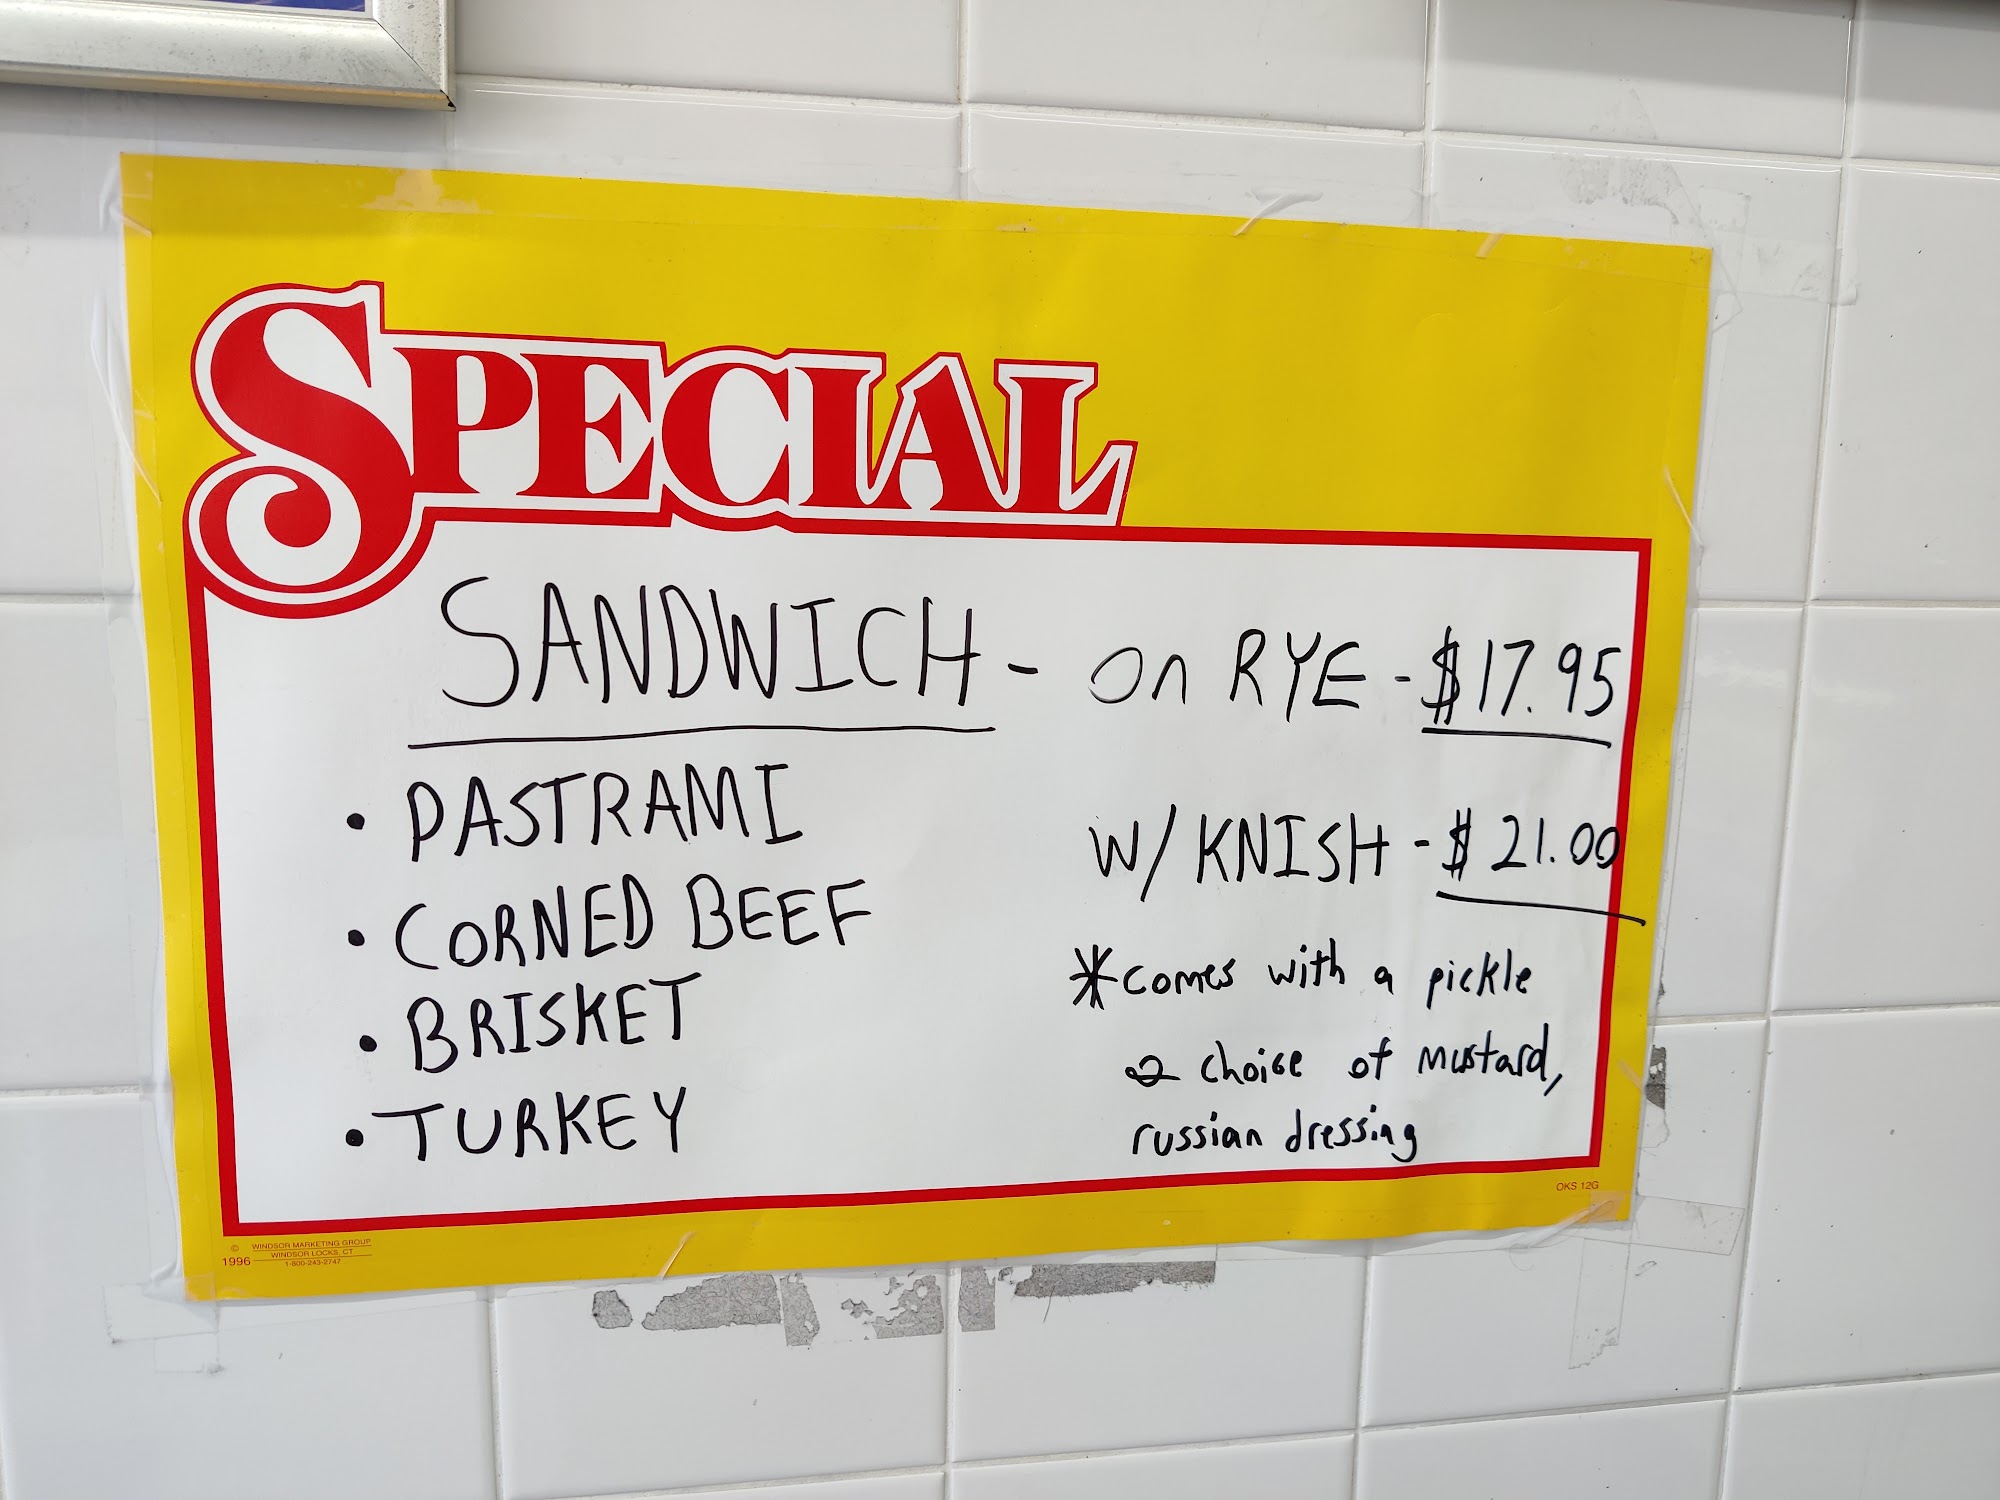 SPECIAL
SANDWICH - on RYE - $17.95
• PASTRAMI
• CORNED BEEF
• BRISKET
• TURKEY
W/ KNISH - $ 21.00
*comes with a pickle
& choice of mustard,
russian dressing
OKS 12G
© 1996 WINDSOR MARKETING GROUP
WINDSOR LOCKS, CT
1-800-243-2747